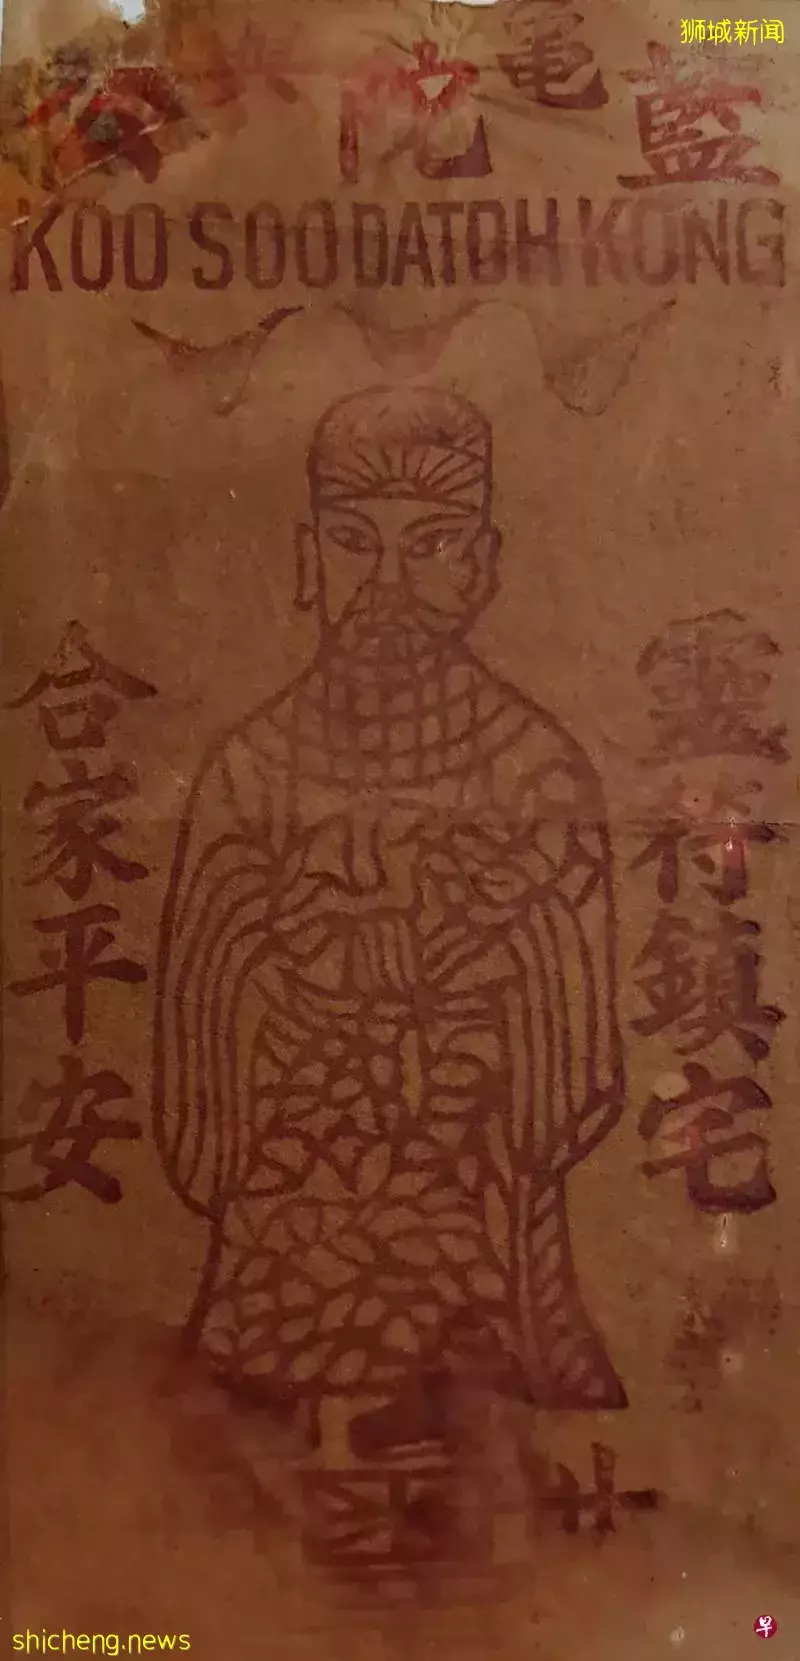 狮城新闻
龜嶼
藍陀公
KOO SOO DATOH KONG
靈符鎮宅
合家平安
shicheng.news
早